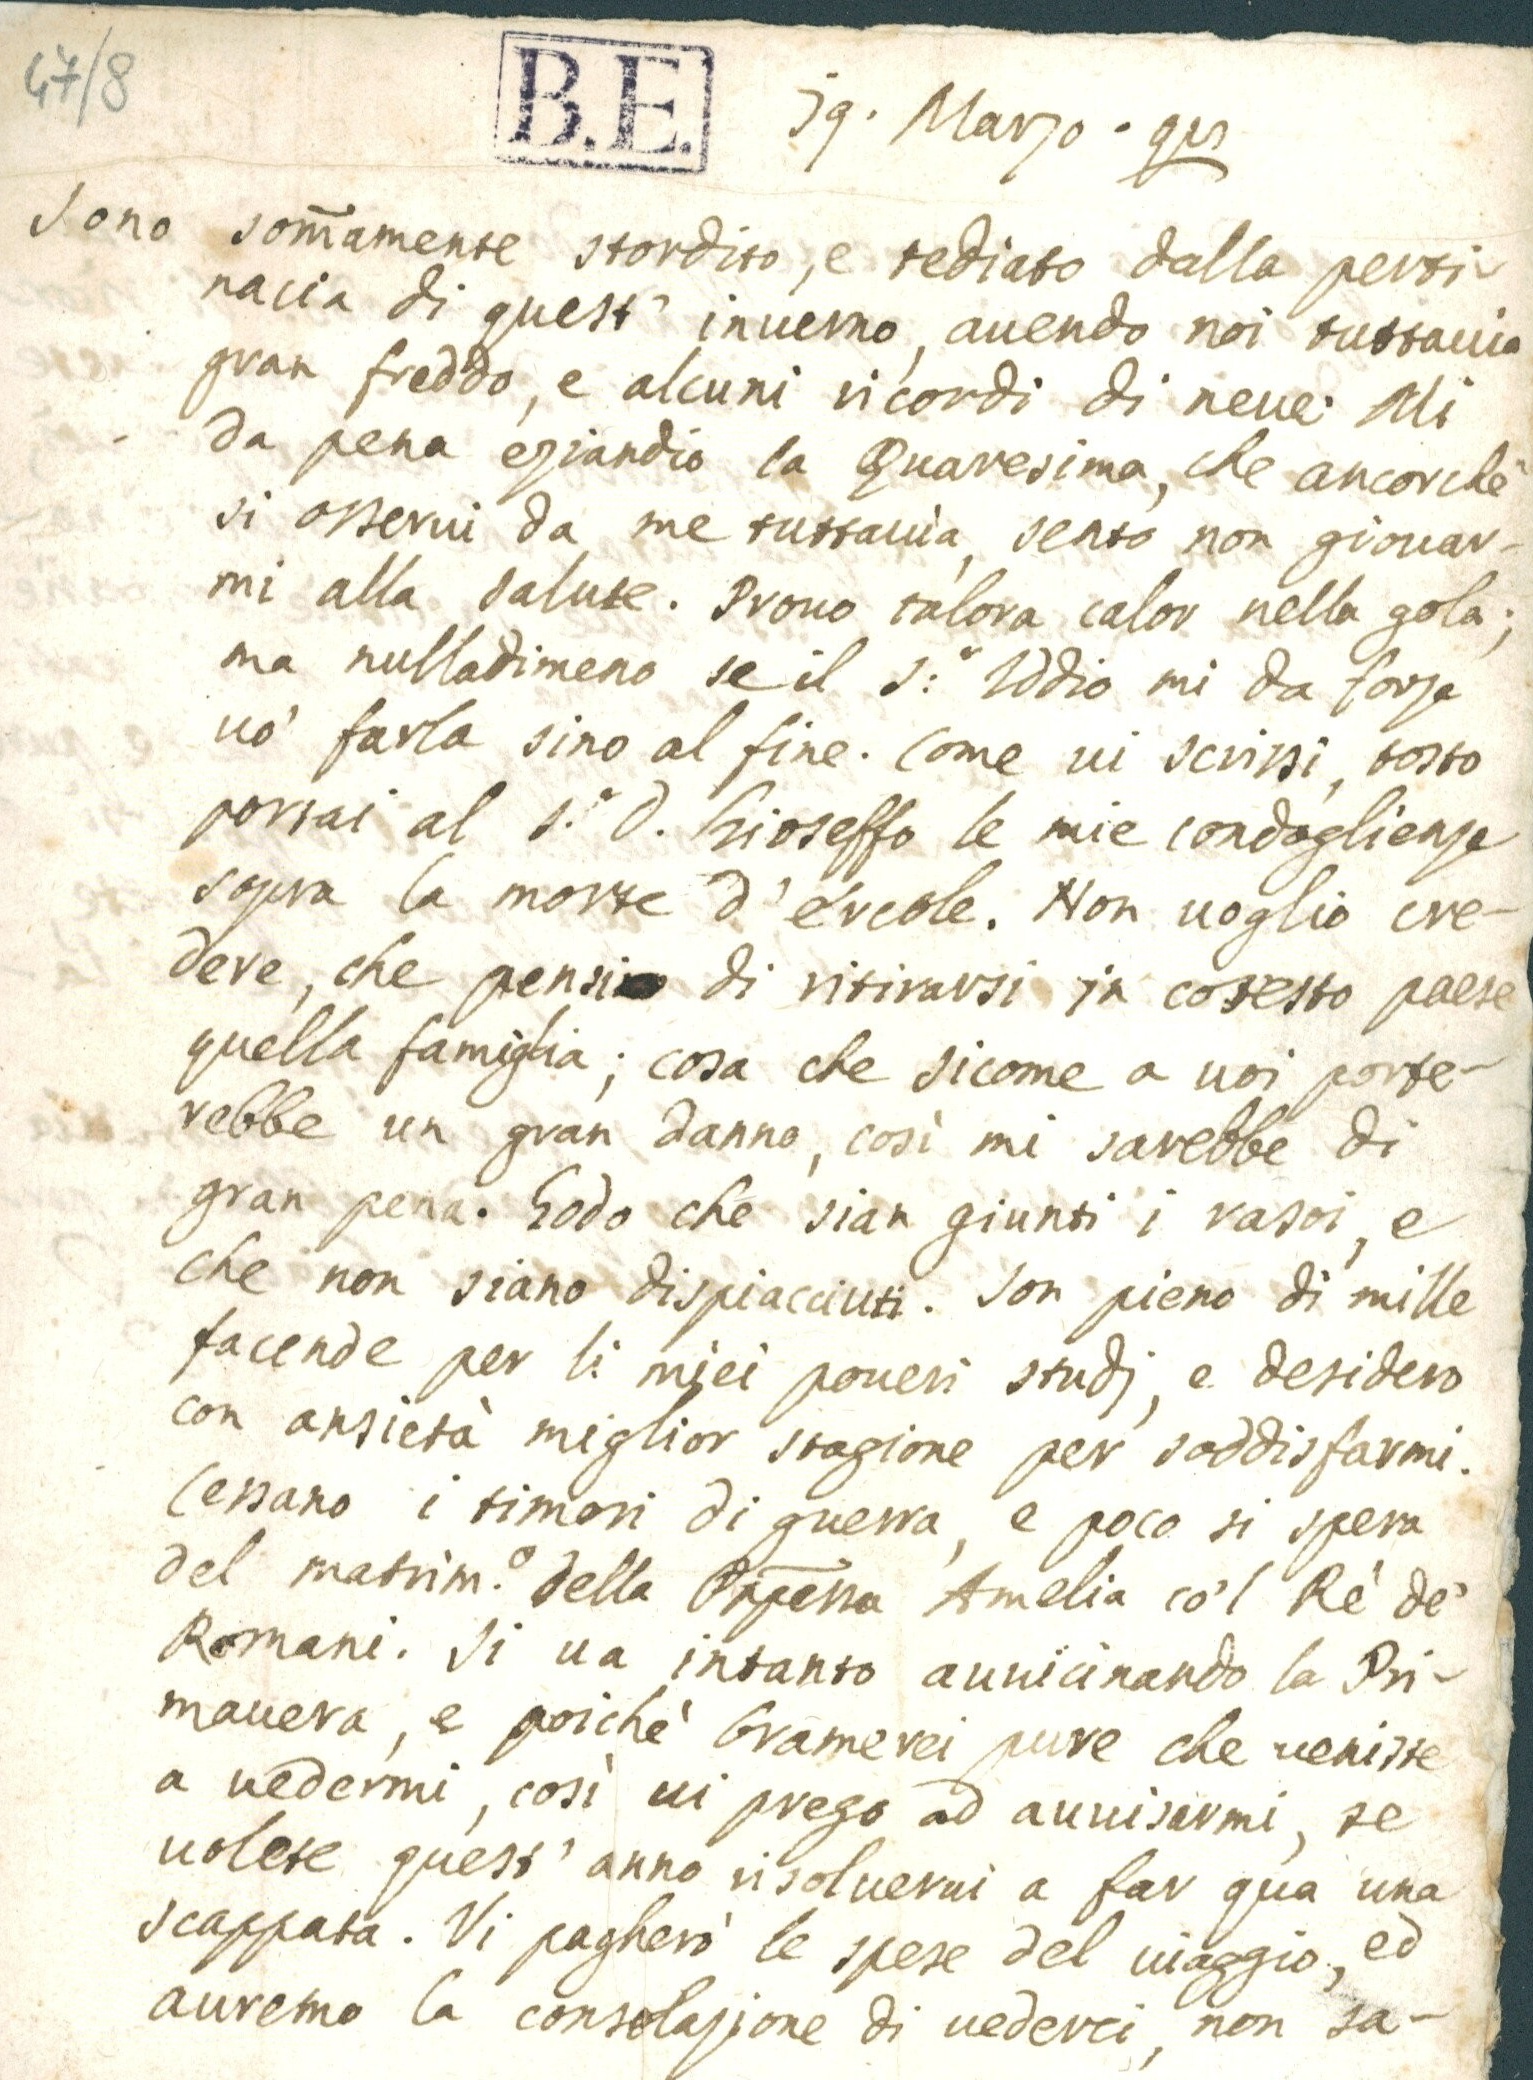 47/8
B.E.
19. Marzo. 98
Sono som̄amente stordito, e tediato dalla perti-
nacia di quest' inuerno, auendo noi tuttauia
gran freddo, e alcuni ricordi di neue. Mi
da pena eziandio la Quaresima, che ancorchè
si osserui da me tuttauia, sento non giouar-
mi alla salute. Prouo talora calor nella gola;
ma nulladimeno se il S.r Iddio mi da forza
uò farla sino al fine. Come ui scrissi, tosto
portai al S.r D. Gioseffo le mie condoglienze
sopra la morte d' Ercole. Non uoglio cre-
dere, che pensi di ritirarsi in cotesto paese
quella famiglia; cosa che sicome a uoi porte-
rebbe un gran danno, così mi sarebbe di
gran pena. Godo che sian giunti i rasoi, e
che non siano dispiacciuti. Son pieno di mille
facende per li miei poueri studj, e desidero
con ansietà miglior stagione per soddisfarmi.
Cessano i timori di guerra, e poco si spera
del matrim.o della Prpēssa Amelia co'l Rè de'
Romani. Si ua intanto auuicinando la Pri-
mauera, e poichè bramerei pure che ueniste
a uedermi, così ui prego ad auuisarmi, se
uolete quest' anno risoluerui a far qua una
scappata. Vi pagherò le spese del uiaggio, ed
auremo la consolazione di uederci, non sa-